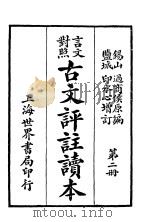 錫山過商侯原編
鹽城印水心增訂
第二册
言文
對照
古文評註讀本
上海世界書局印行